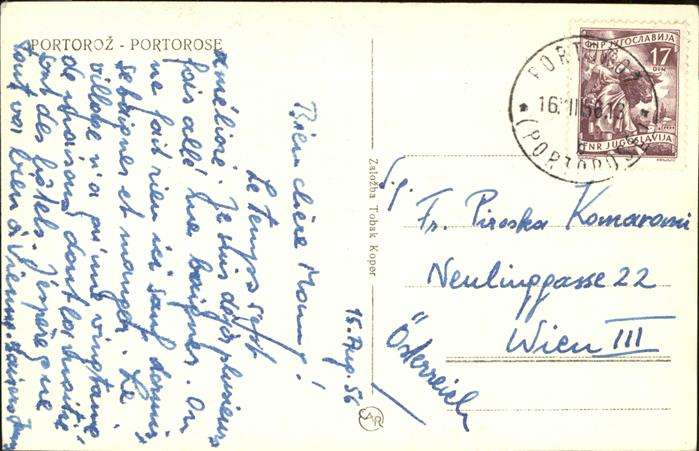 PORTOROŽ - PORTOROSE
15. Aug. 56
Bien chère Mamy!
Le temps s'est
amélioré. Je suis déjà plusieurs
fois allé me baigner. On
ne fait rien ici sauf dormir,
se baigner et manger. Le
village n'a qu'une vingtaine
de maisons dont la moitié
sont des hôtels. J'espère que
tout va bien à Vienne.
Založba Tobak Koper
AR
FNR JUGOSLAVIJA
17
DIN
FNR JUGOSLAVIJA
PORTOROŽ
(PORTOROSE)
Fr. Piroska Komaromi
Neulinggasse 22
Wien III
Österreich